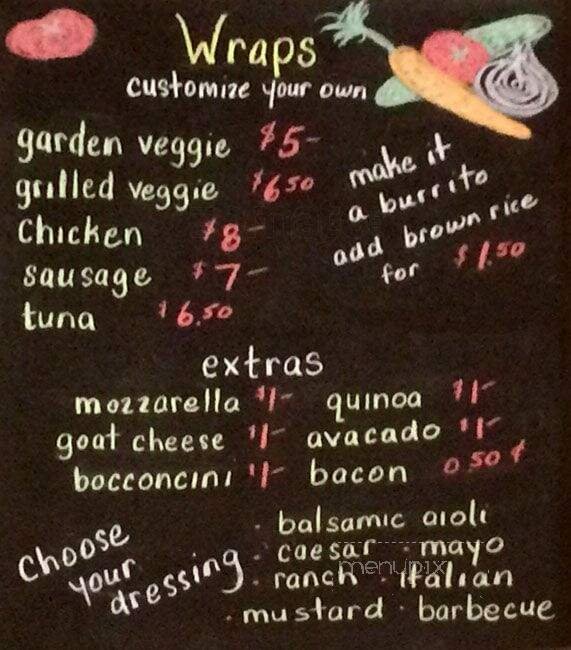 Wraps
customize your own
garden veggie $5-
grilled veggie $6.50
Chicken $8-
sausage $7-
tuna $6.50
make it
a burrito
add brown rice
for $1.50
extras
mozzarella $1-
goat cheese $1-
bocconcini $1-
quinoa $1-
avacado $1-
bacon 0.50¢
choose
your
dressing
· balsamic aioli
· caesar · mayo
· ranch · italian
· mustard · barbecue
menupix